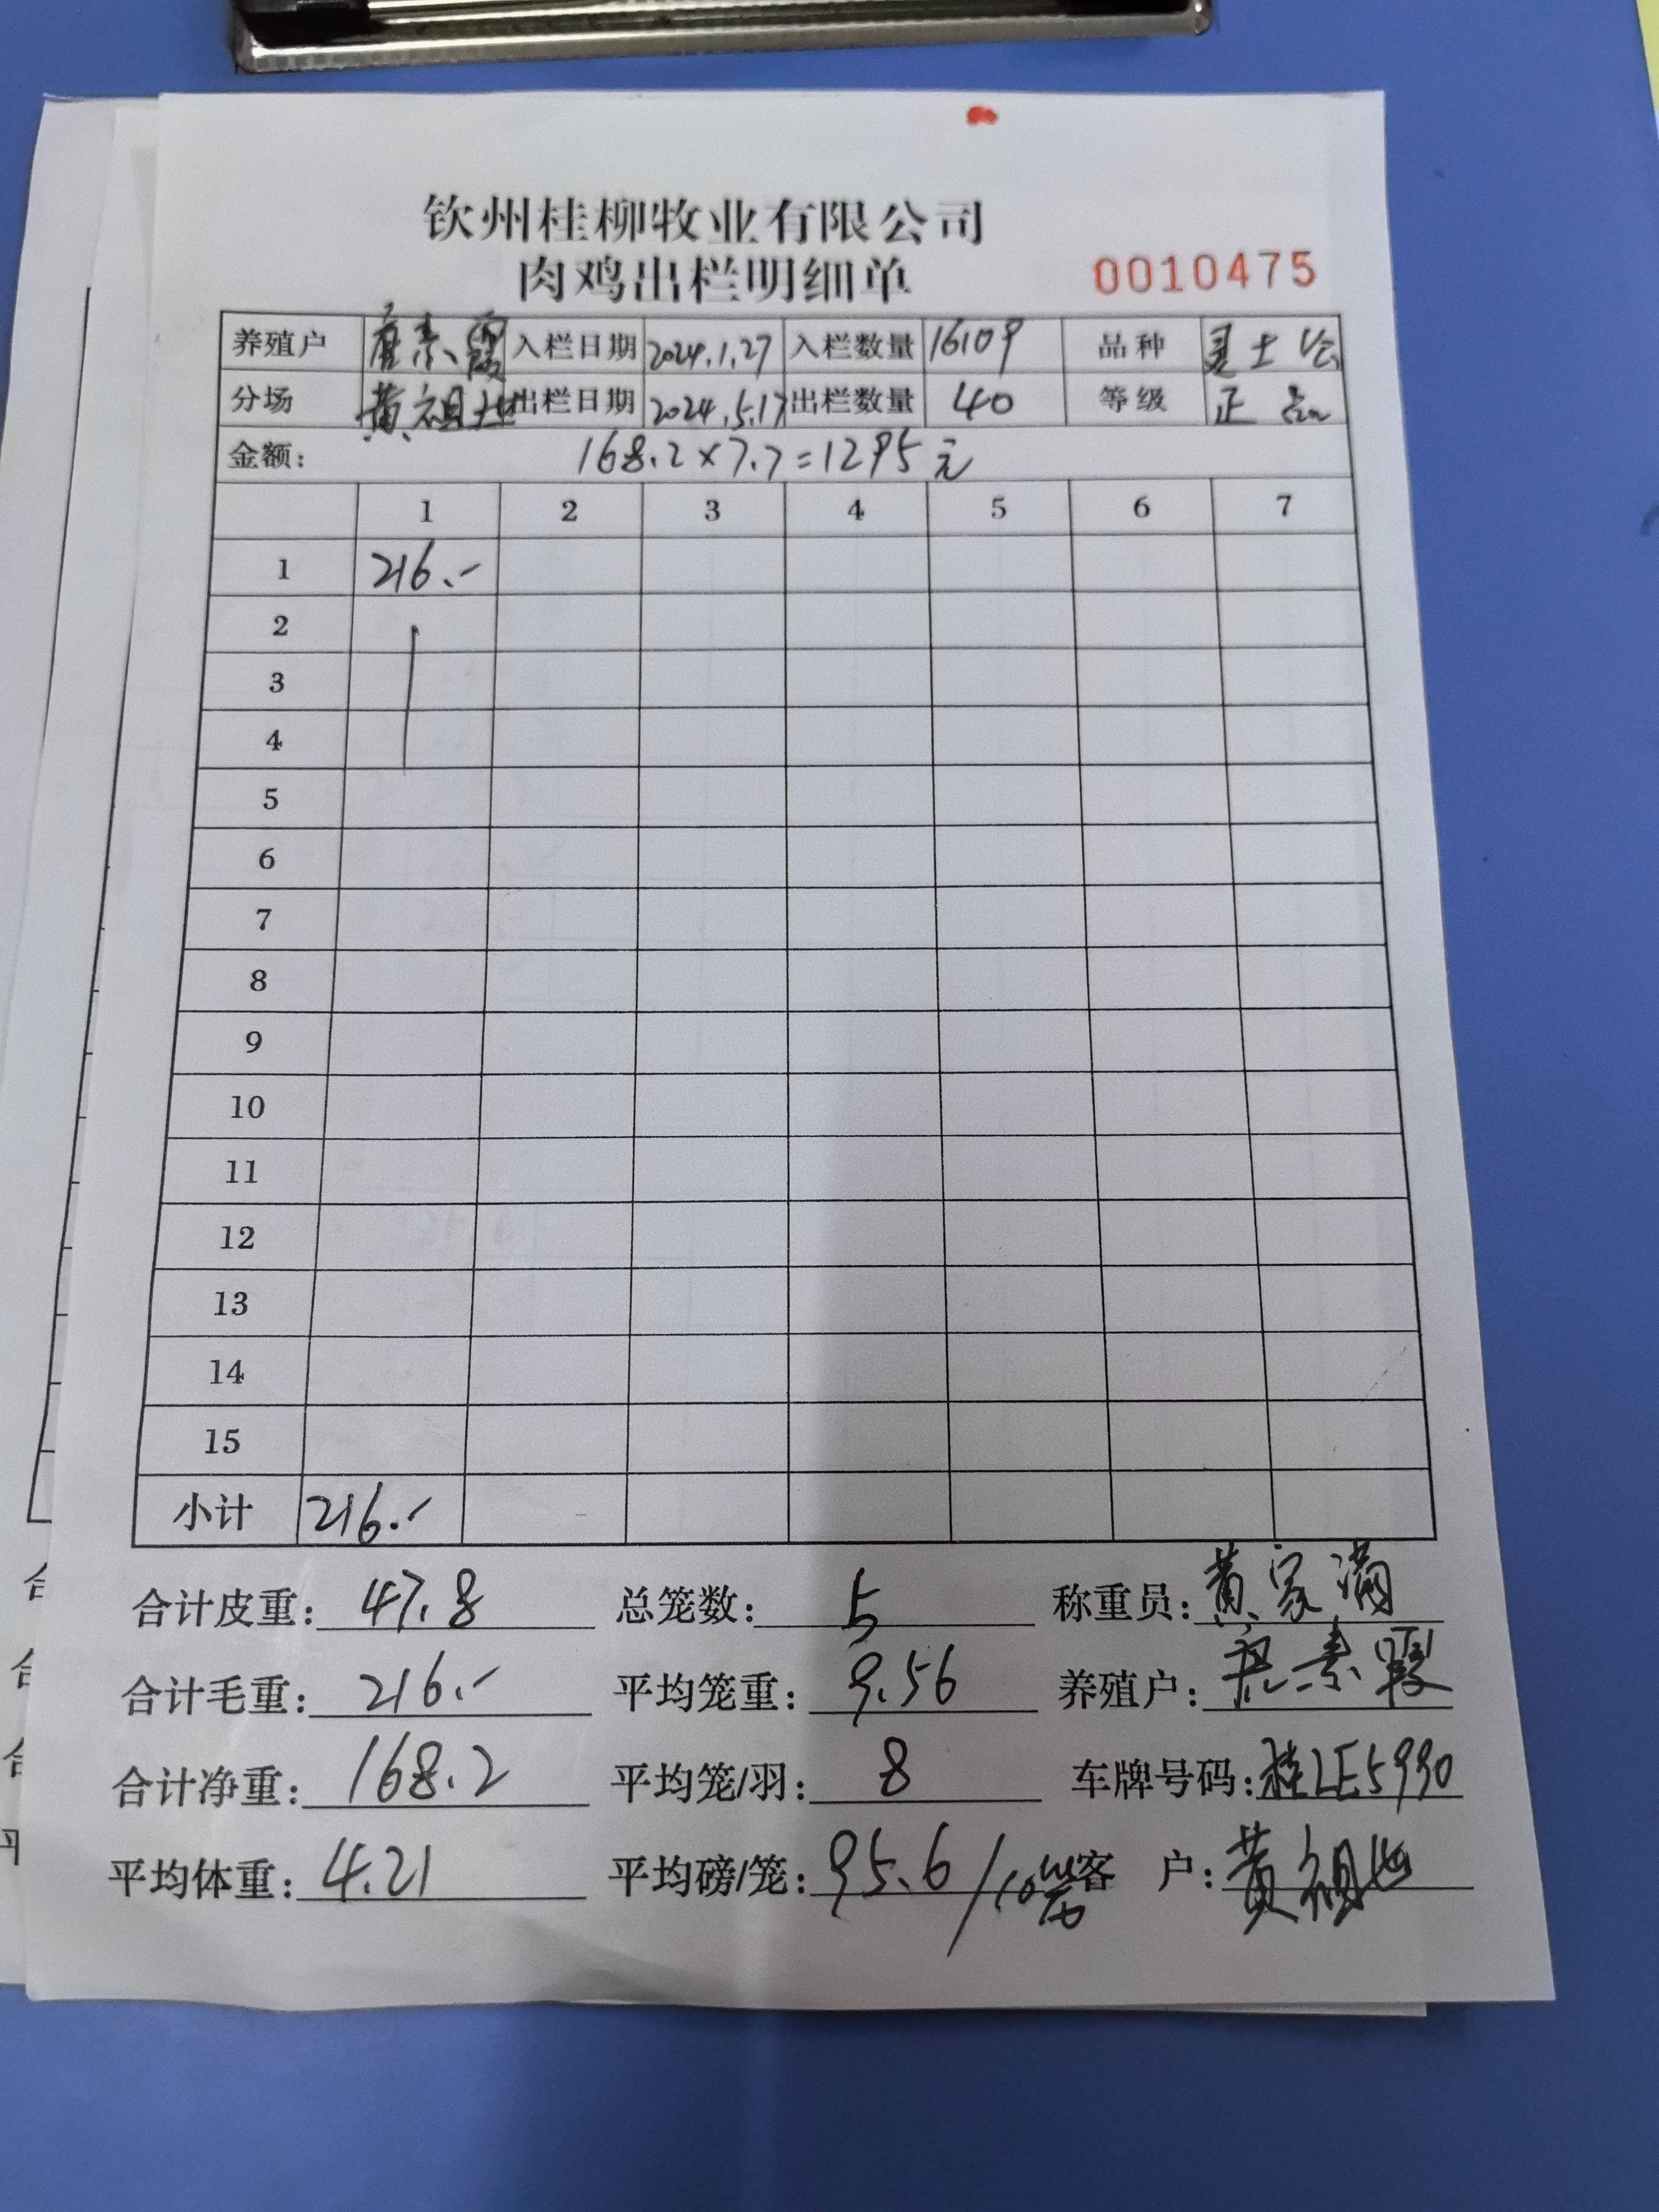 钦州桂柳牧业有限公司
肉鸡出栏明细单 0010475
养殖户 素霞 入栏日期 2024.1.27 入栏数量 16109 品种 土
分场 黄祖 出栏日期 2024.5.17 出栏数量 40 等级 正品
金额: 168.2×7.7=1295元
1 2 3 4 5 6 7
1 216.-
2
3
4
5
6
7
8
9
10
11
12
13
14
15
小计 216.-
合计皮重: 47.8 总笼数: 5 称重员: 黄家满
合计毛重: 216.- 平均笼重: 9.56 养殖户: 素霞
合计净重: 168.2 平均笼/羽: 8 车牌号码: 桂LE5990
平均体重: 4.21 平均磅/笼: 95.6/10笼 客 户: 黄祖
合
合
合
平